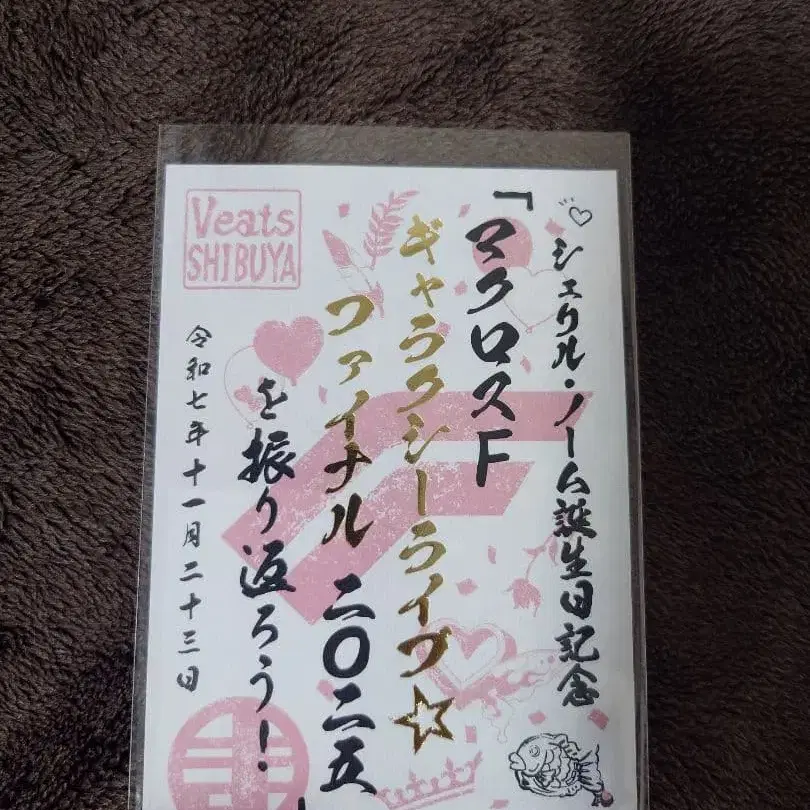 シェリル・ノーム誕生日記念
『マクロスF
ギャラクシーライブ☆
ファイナル 二〇二五
を振り返ろう!
令和七年十一月二十三日
Veats
SHIBUYA